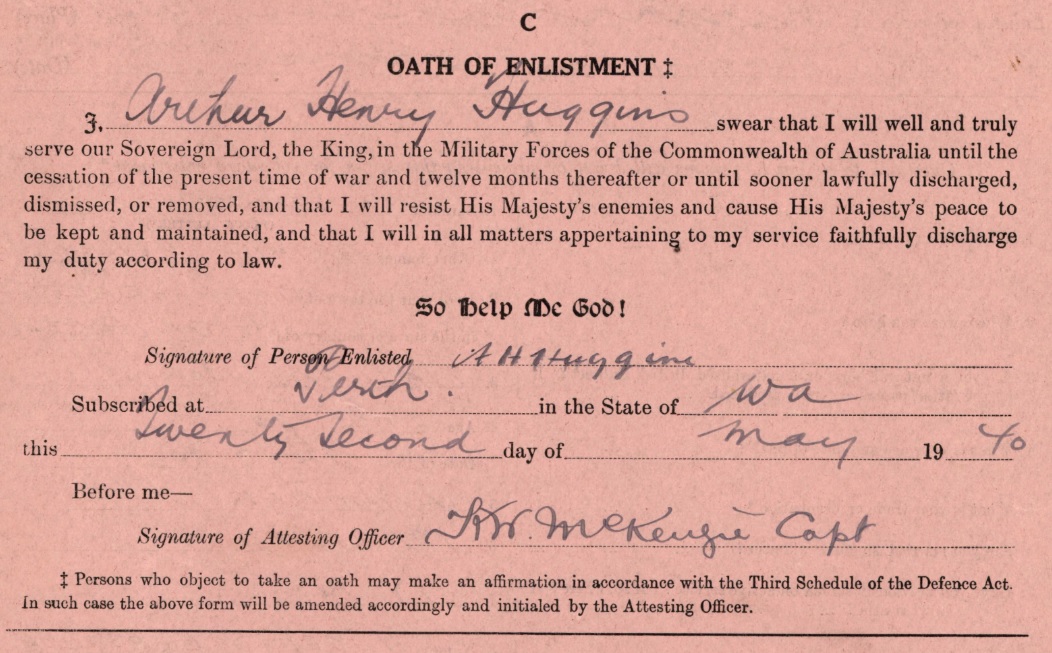 C
OATH OF ENLISTMENT ‡
I, Arthur Henry Huggins swear that I will well and truly
serve our Sovereign Lord, the King, in the Military Forces of the Commonwealth of Australia until the
cessation of the present time of war and twelve months thereafter or until sooner lawfully discharged,
dismissed, or removed, and that I will resist His Majesty's enemies and cause His Majesty's peace to
be kept and maintained, and that I will in all matters appertaining to my service faithfully discharge
my duty according to law.
So Help Me God!
Signature of Person Enlisted A H Huggins
Subscribed at Perth. in the State of W A
this Twenty Second day of May 19 40
Before me—
Signature of Attesting Officer McKenzie Capt
‡ Persons who object to take an oath may make an affirmation in accordance with the Third Schedule of the Defence Act.
In such case the above form will be amended accordingly and initialed by the Attesting Officer.